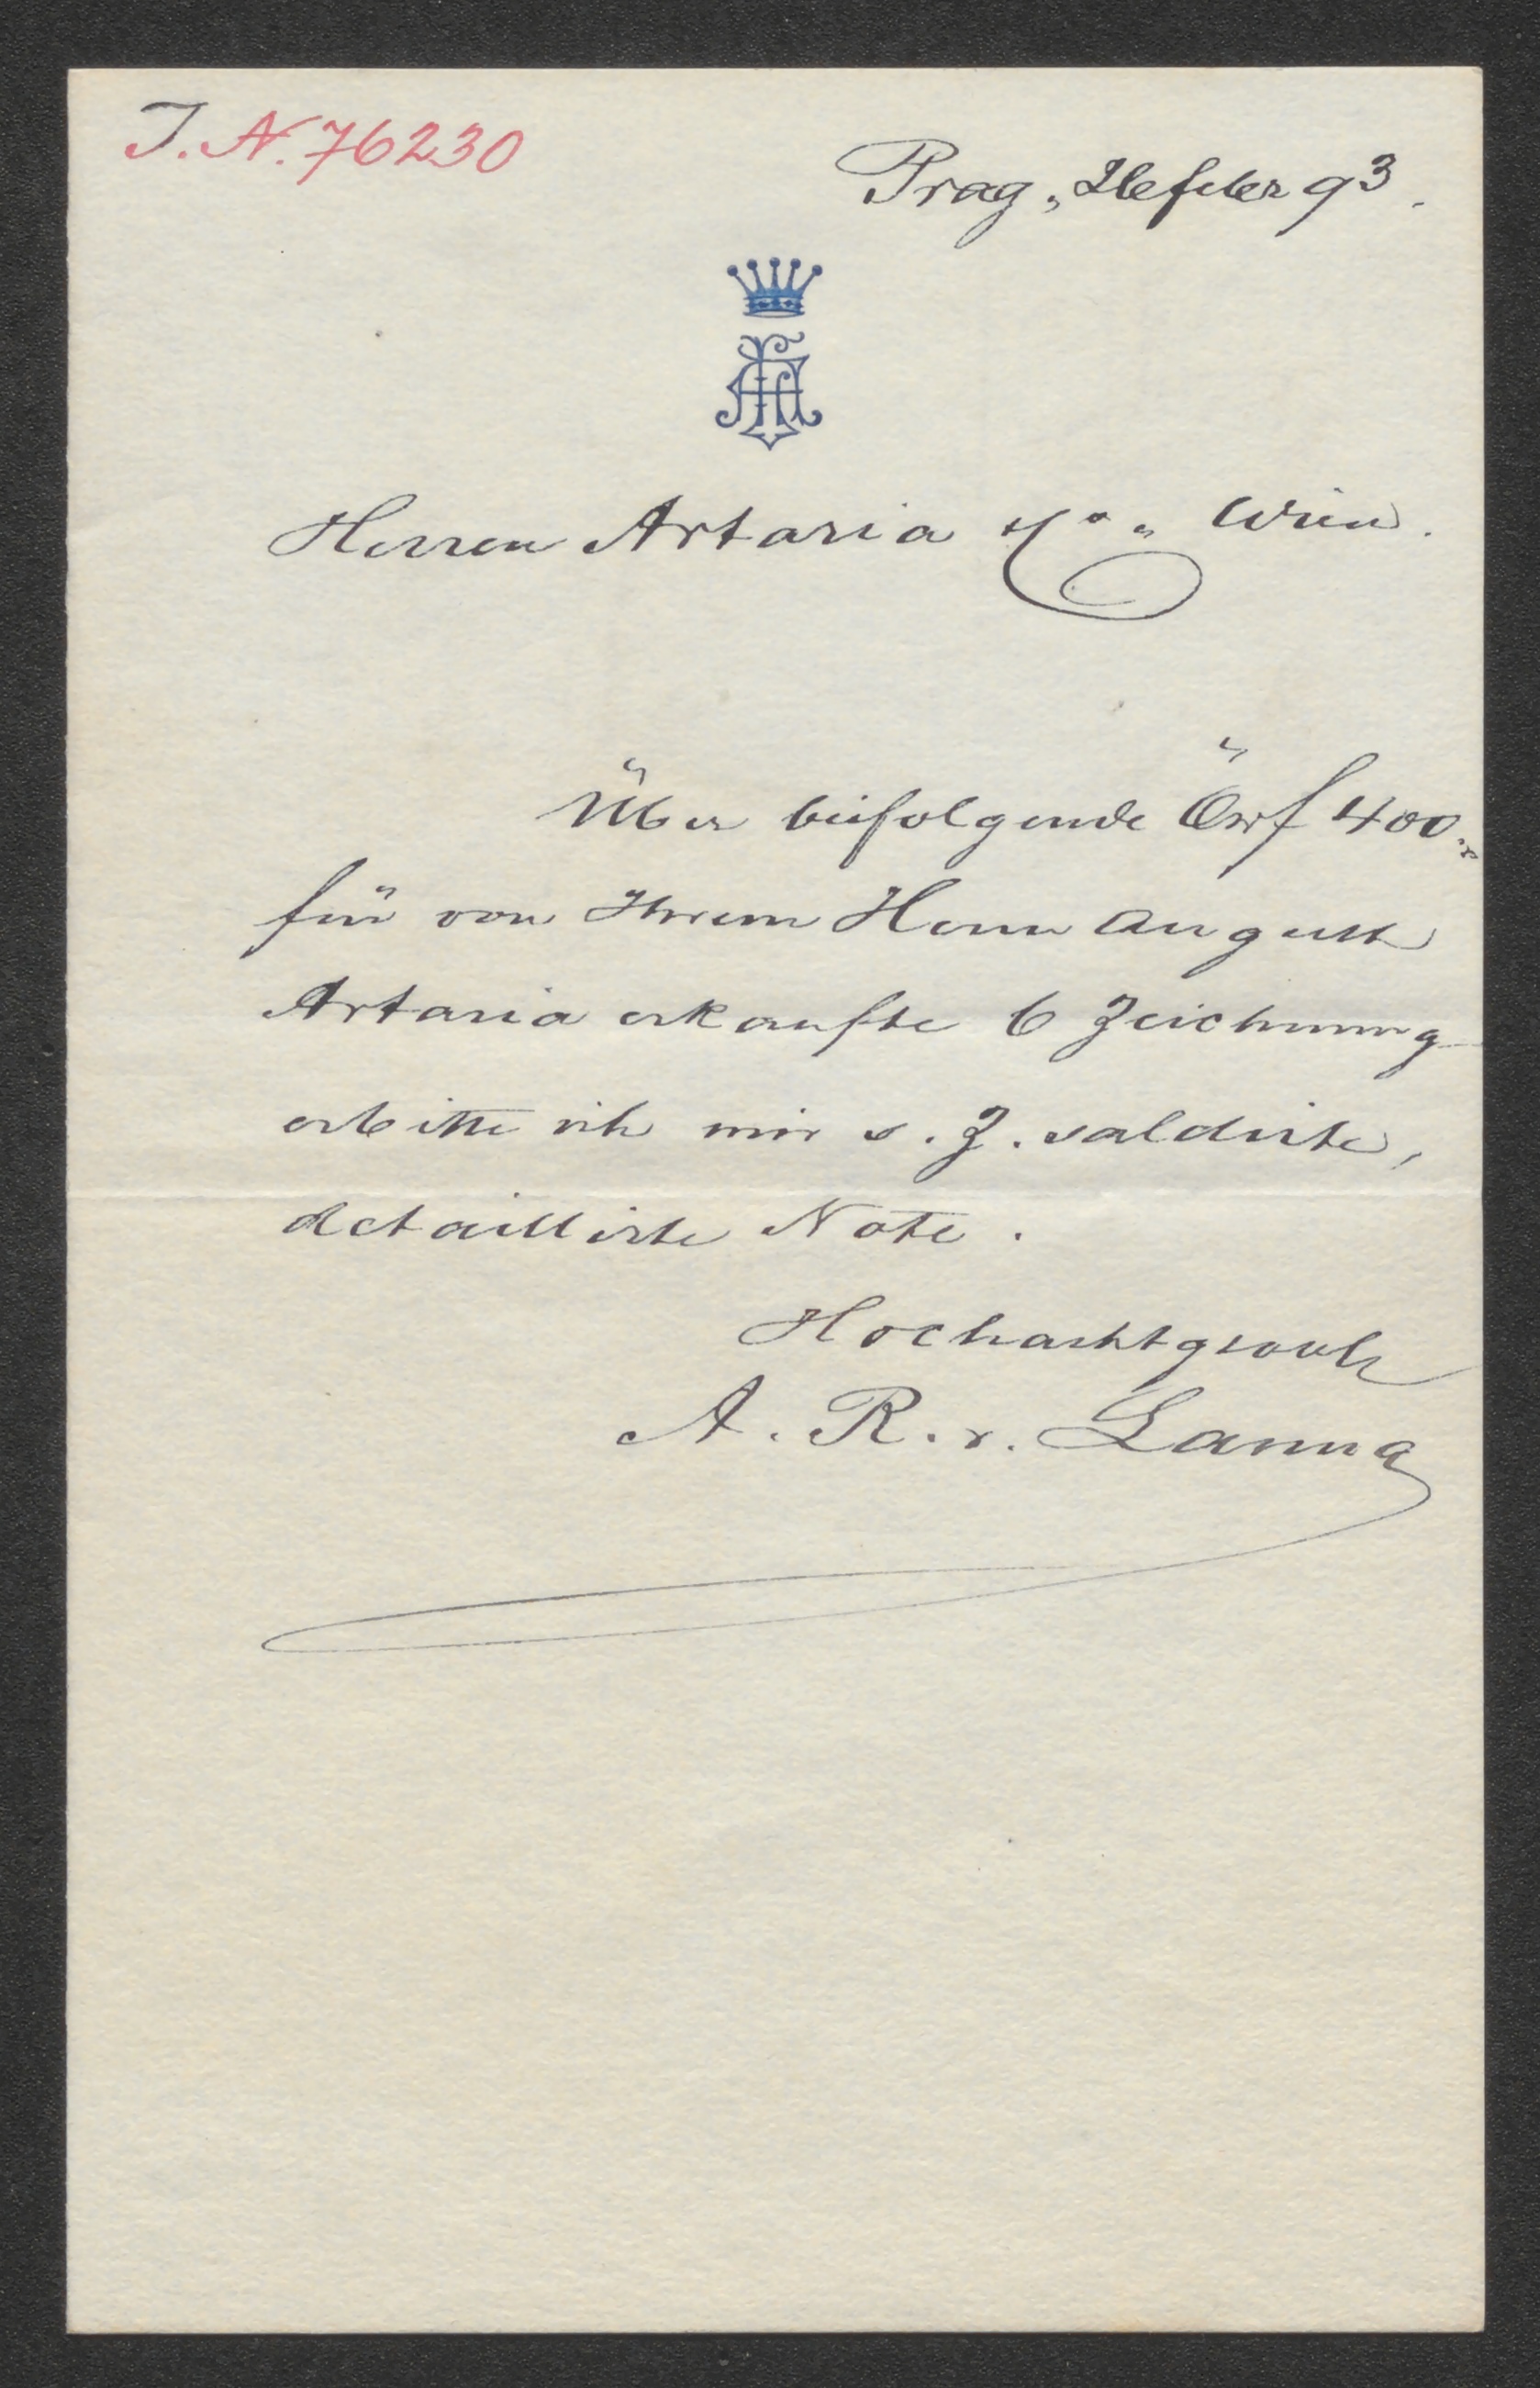 I.N. 76230
Prag, 93.
Herren Artaria & Co, Wien.
Über beifolgende Öwf 400.-
für von Ihrem Herrn August
Artaria erkaufte 6 Zeichnung
erbitte ich mir s. Z. saldirte,
detaillirte Note.
Hochachtgsvoll
A. R. v. Lanna